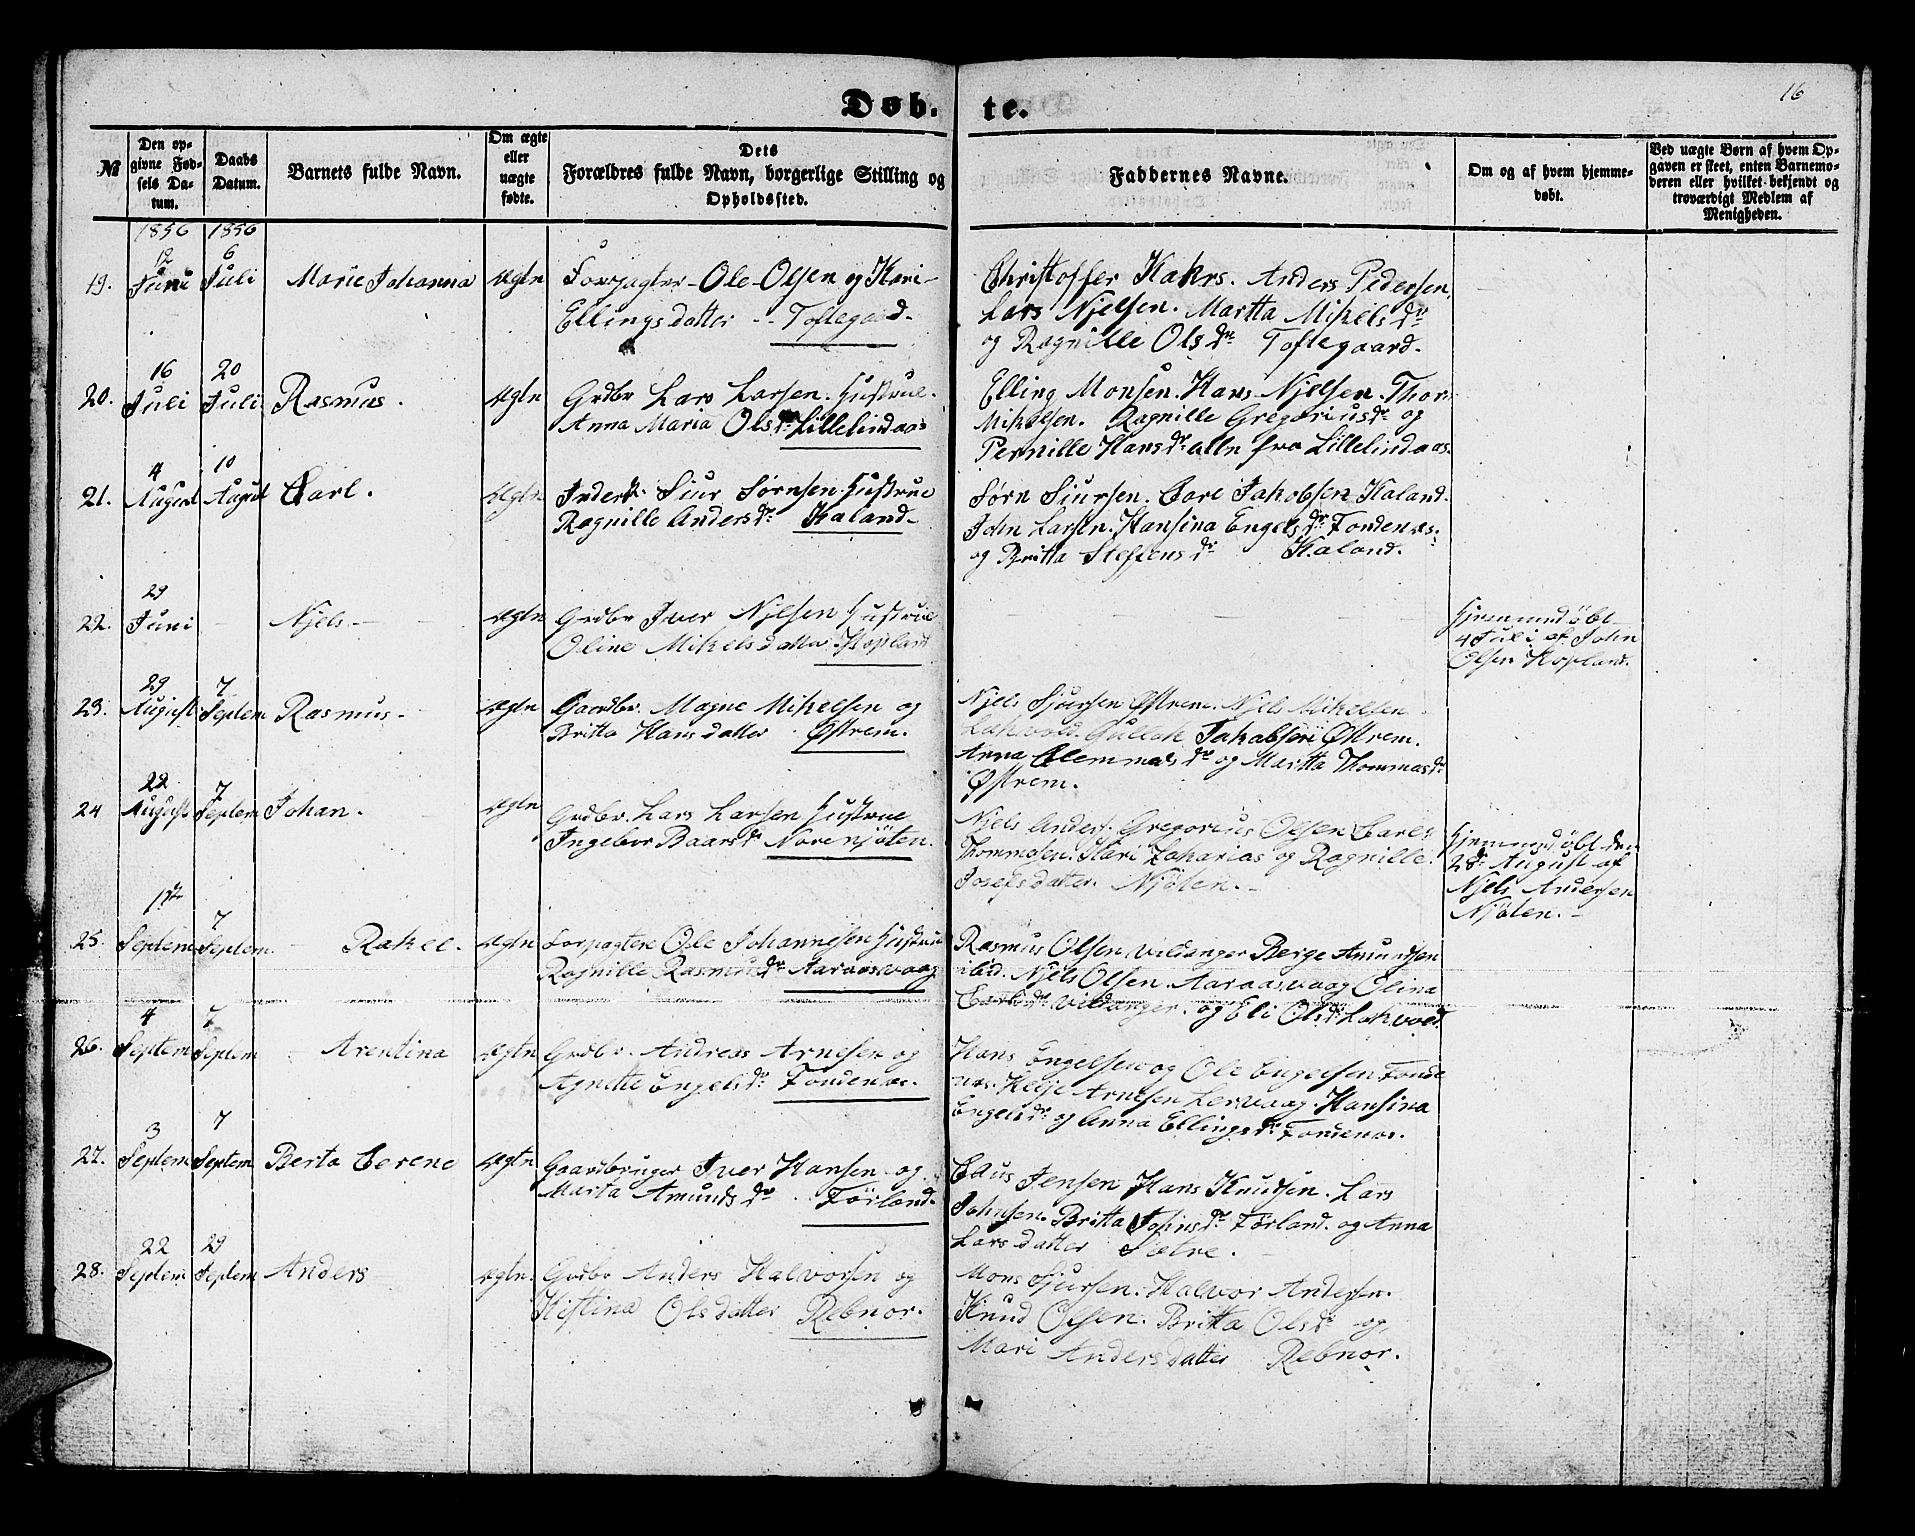 Døb- te.
16
№
Den op-
givne Fød-
sels Da-
tum.
Daabs
Datum.
Barnets fulde Navn.
Om ægte
eller
uægte
fødte.
Dets
Forældres fulde Navn, borgerlige Stilling og
Opholdssted.
Faddernes Navne.
Om og af hvem hjemme-
døbt.
Ved uægte Børn af hvem Op-
gaven er skeet, enten Barnemo-
deren eller hvilket bekjendt og
troværdigt Medlem af
Menigheden.
1856 1856
19. 12 Juni 6 Juli Marie Johanna ægtn
Forpagter Ole Olsen og Kari
Ellingsdatter - Toftegaard
Christoffer Kahrs. Anders Pedersen,
Lars Njelsen. Martta Mikelsdr
og Ragnille Olsdr Toftegaard.
20. 16 Juli 20 Juli Rasmus. ægtn
Grdbr Lars Larsen. Hustrue.
Anna Maria Olsdr Lillelindaas
Elling Monsen. Hans Njelsen. Thor
Mikelsen. Ragnille Gregoriusdr og
Pernille Hansdr alle fra Lillelindaas.
21. 4 August 10 August Carl. ægtn
Inderst. Siur Sørnsen. Hustrue
Ragnille Andersdr Kaland
Sørn Siursen. Carl Jakobsen Kaland.
John Larsen. Hansina Engelsdr Fondenæs.
og Britta Steffensdr Kaland.
22. 29 Juni - Njels - ægtn
Grdbr Iver Njelsen Hustrue
Oline Mikelsdatter. Hopland
Hjemmedøbt
4 Juli af John
Olsen Hopland.
23. 29 August 7 Septem Rasmus. ægtn
Gaardbr. Magne Mikelsen og
Britta Hansdatter. Østrem.
Njels Sjursen Østrem. Njels Mikelsen
Lakvold. Gullak Jakobsen Østrem.
Anna Clemmetsdr og Martta Thommasdr
Østrem.
24 22 August 7 Septem Johan. ægtn
Grdbr. Lars Larsen Hustrue
Ingebor Baarsdr Norenjøten.
Njels Anders. Gregorius Olsen Carl
Thommesen. Kari Zakarias og Ragnille
Josefsdatter. Njøten.
Hjemmedøbt den
28de August af
Njels Andersen
Njøten.
25. 1ste Septem 7 Septem Rakel. ægtn
Forpagtere Ole Johannesen Hustrue
Ragnille Rasmusdr Aaraasvaag
Rasmus Olsen Vildanger Berge Amundsen
ibid. Njels Olsen. Aaraasvaag Olina
Carlsdr Vildanger. og Eli Olsdr Lakvold
26. 4 Septem 7 Septem Arentina ægtn
Grdbr. Andreas Arnesen og
Agnette Engelsdr Fondenæs.
Hans Engelsen og Ole Engelsen Fonde
næs. Helje Arnesen Lervaag. Hansina
Engelsdr og Anna Ellingsdr Fondenæs.
27. 3 Septem 7 Septem Berta Cerene ægtn
Gaardbruger Iver Hansen og
Marta Amundsdr. Førland.
Claus Jensen Hans Knudsen. Lars
Johnsen. Britta Johnsdr Førland. og Anna
Larsdatter Sælve.
28. 22 Septem 29 Septem Anders ægtn.
Grdbr Anders Halvorsen og
Kistina Olsdatter Rebnor.
Mons Sjursen. Halvor Andersen.
Knud Olsen. Britta Olsdr og
Mari Andersdatter Rebnor.